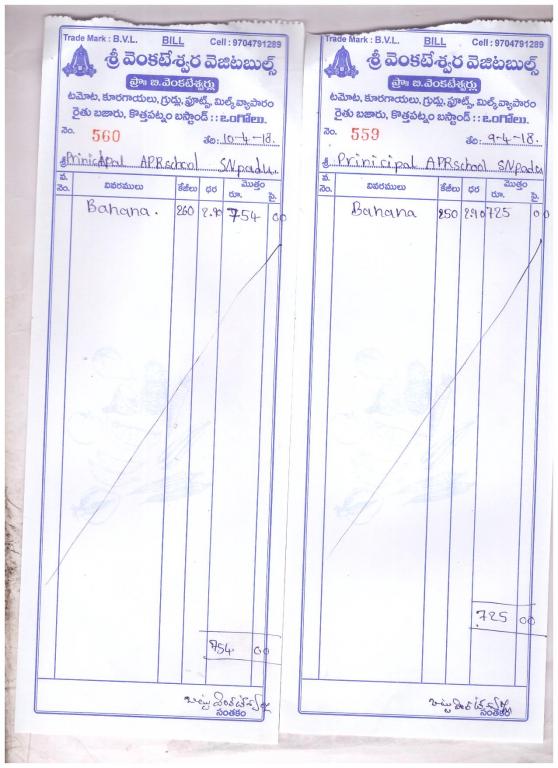 Trade Mark : B.V.L. BILL Cell : 9704791289
శ్రీ వెంకటేశ్వర వెజిటబుల్స్
ప్రొ॥ బి.వెంకటేశ్వర్లు
టమోట, కూరగాయలు, గ్రుడ్లు, ఫ్రూట్స్, మిల్క్ వ్యాపారం
రైతు బజారు, కొత్తపట్నం బస్టాండ్ : : ఒంగోలు.
నెం. 560 తేది: 10-4-18.
శ్రీ Prinicipal APRschool S.N.padu.
వ. నెం. వివరములు కేజీలు ధర మొత్తం రూ. పై.
Banana. 260 2.90 754 00
754. 00
సంతకం
Trade Mark : B.V.L. BILL Cell : 9704791289
శ్రీ వెంకటేశ్వర వెజిటబుల్స్
ప్రొ॥ బి.వెంకటేశ్వర్లు
టమోట, కూరగాయలు, గ్రుడ్లు, ఫ్రూట్స్, మిల్క్ వ్యాపారం
రైతు బజారు, కొత్తపట్నం బస్టాండ్ : : ఒంగోలు.
నెం. 559 తేది: 9-4-18.
శ్రీ Prinicipal APRschool S.N.padu
వ. నెం. వివరములు కేజీలు ధర మొత్తం రూ. పై.
Banana 250 2.90 725 00
725 00
సంతకం